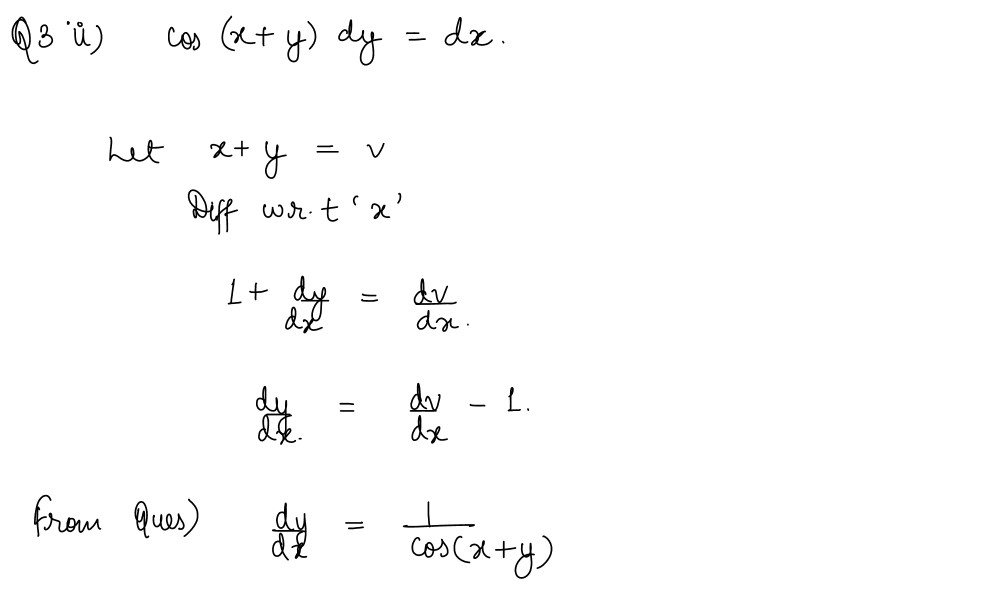 Q3 ii) cos (x+y) dy = dx.
Let x+y = v
Diff w.r.t 'x'
1 + dy/dx = dv/dx.
dy/dx. = dv/dx - 1.
from Ques) dy/dx = 1/cos(x+y)